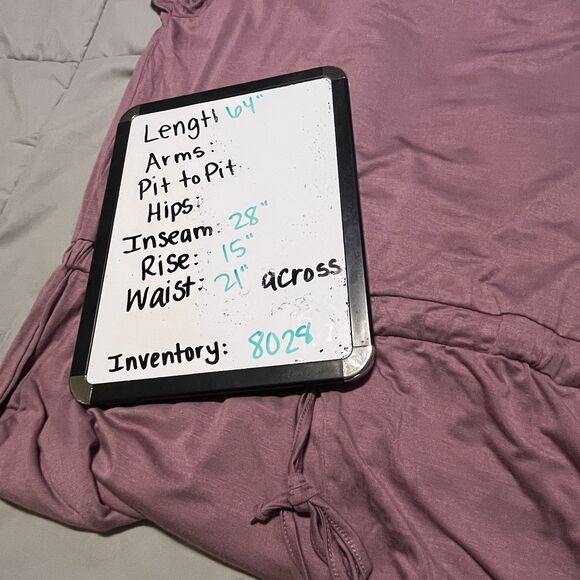 Length 64"
Arms:
Pit to Pit
Hips:
Inseam: 28"
Rise: 15"
Waist: 21" across
Inventory: 8028